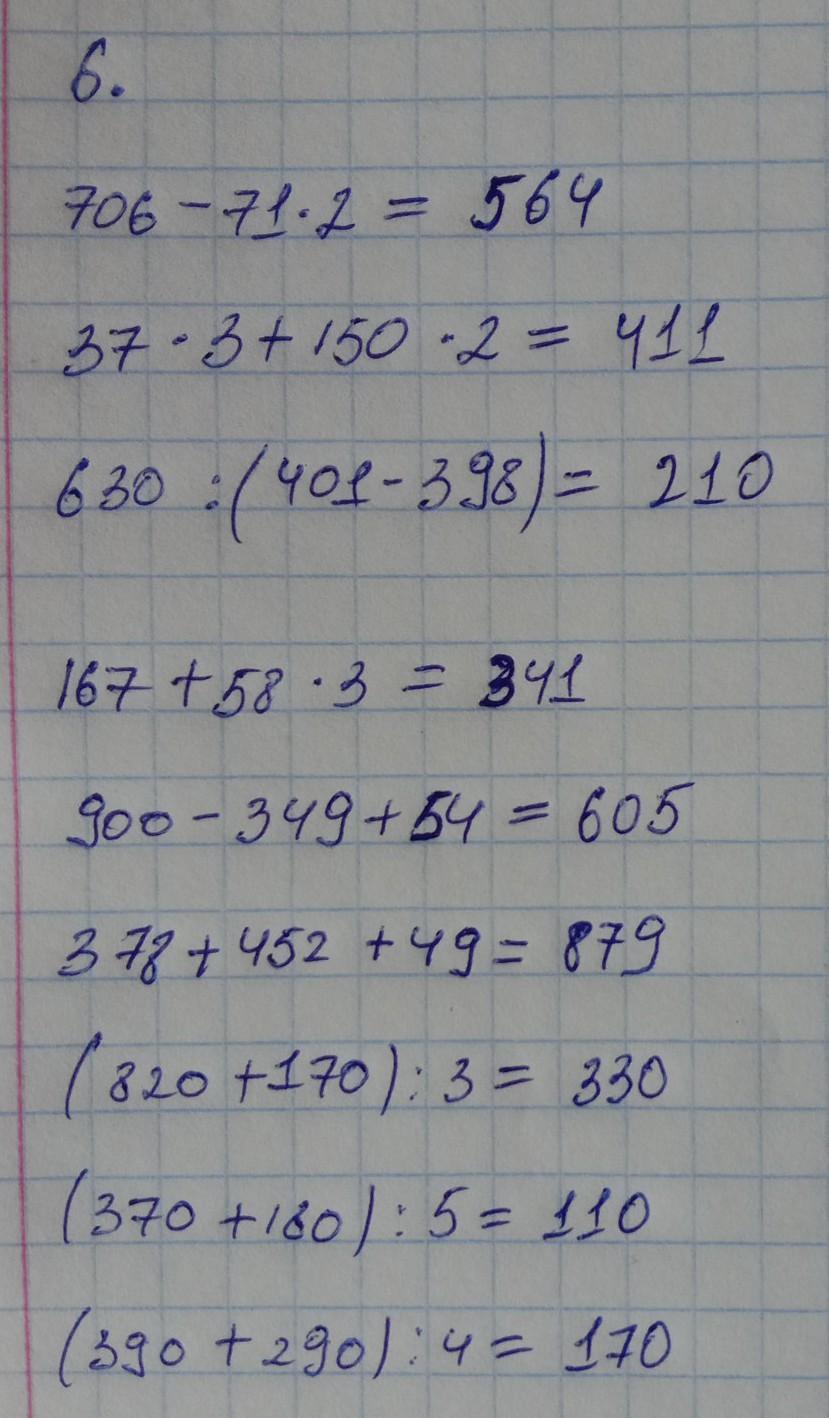 6.
706 - 71 · 2 = 564
37 · 3 + 150 · 2 = 411
630 : (401 - 398) = 210
167 + 58 · 3 = 341
900 - 349 + 54 = 605
378 + 452 + 49 = 879
(820 + 170) : 3 = 330
(370 + 180) : 5 = 110
(390 + 290) : 4 = 170